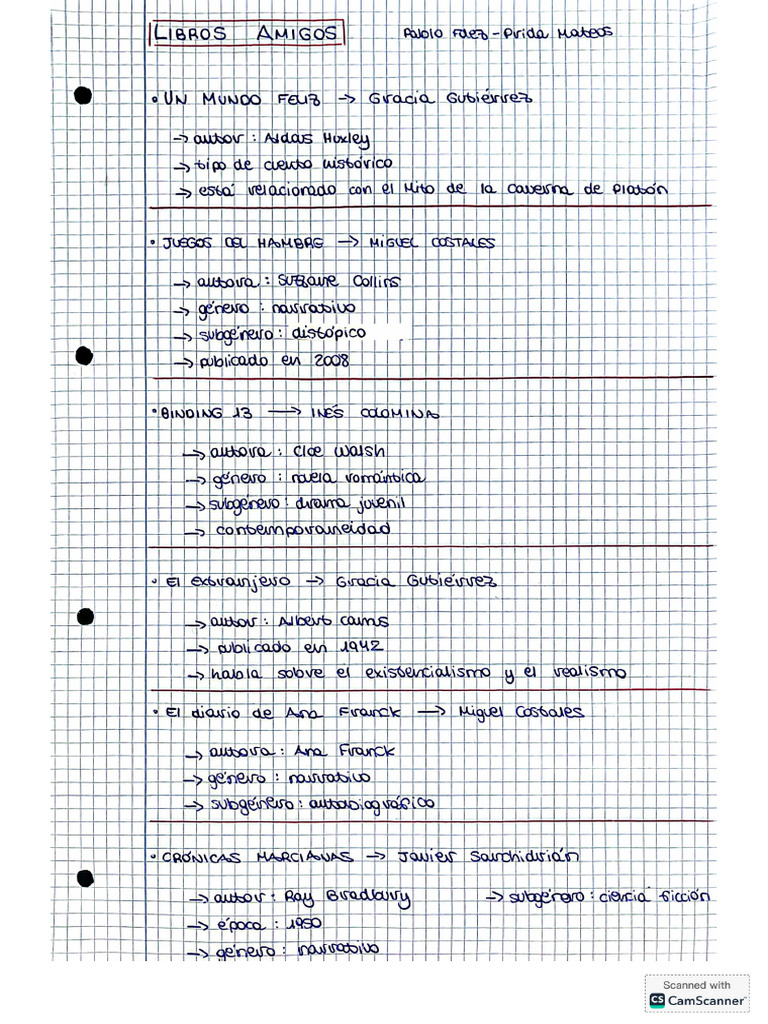 LIBROS AMIGOS Pablo Fdez-Prida Mateos
• UN MUNDO FELIZ → Gracia Gutiérrez
→ autor: Aldas Huxley
→ tipo de cuento histórico
→ está relacionado con el Mito de la caverna de Platón
• JUEGOS DEL HAMBRE → MIGUEL COSTALES
→ autora: Suzzane Collins
→ género: narrativo
→ subgénero: distópico
→ publicado en 2008
• BINDING 13 → INÉS COLOMINA
→ autora: Cloe Walsh
→ género: novela romántica
→ subgénero: drama juvenil
→ contemporaneidad
• El extranjero → Gracia Gutiérrez
→ autor: Alberto Camus
→ publicado en 1942
→ habla sobre el existencialismo y el realismo
• El diario de Ana Franck → Miguel Costales
→ autora: Ana Franck
→ género: narrativo
→ subgénero: autobiográfico
• CRÓNICAS MARCIANAS → Javier Sarchidrián
→ autor: Ray Bradbury → subgénero: ciencia ficción
→ época: 1950
→ género: narrativo
Scanned with
CS CamScanner